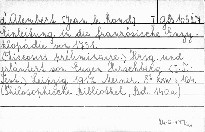 d'Alembert, Jean le Rond, 7 gb 10549
Einleitung in die französische Enzy-
klopädie von 1751.
(Discours préliminaire.) Hrsg. und
erläutert von Eugen Hirschberg (
Leipzig 1912 Meiner. 8° 164.
(Philosophische Bibliothek, Bd. 140a)